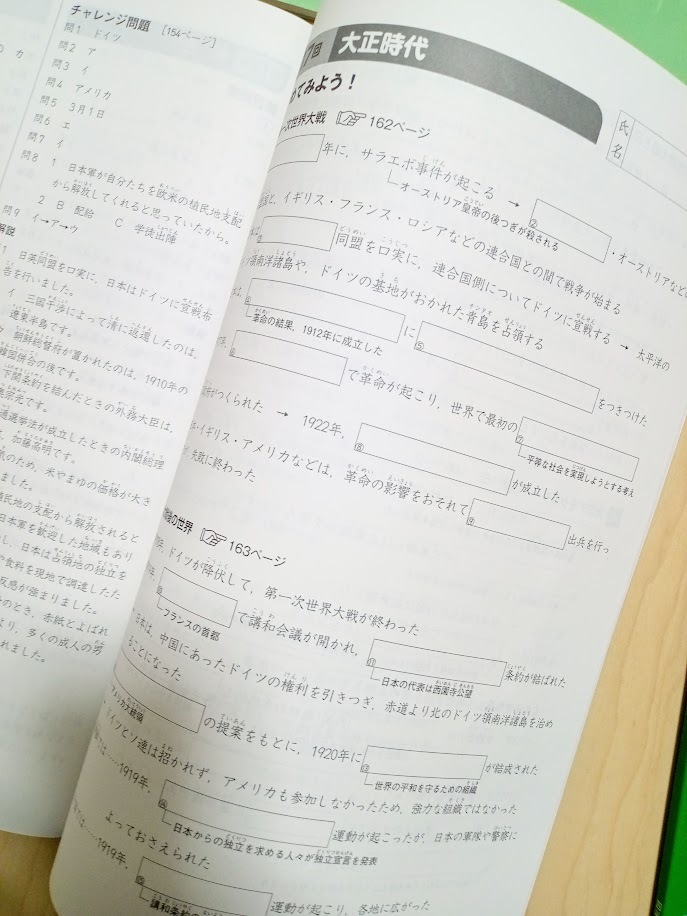 チャレンジ問題 [154ページ]
問1 ドイツ
問2 ア
問3 イ
問4 アメリカ
問5 3月1日
問6 エ
問7 イ
問8 1 日本軍が自分たちを欧米の植民地支配
から解放してくれると思っていたから。
2 B 配給 C 学徒出陣
問9 イ→ア→ウ
解説
1 日英同盟を口実に、日本はドイツに宣戦布
告を行いました。
イ 三国干渉によって清に返還したのは、
遼東半島です。
朝鮮総督府が置かれたのは、1910年の
韓国併合の後です。
下関条約を結んだときの外務大臣は、
通選挙法が成立したときの内閣総理
加藤高明です。
のため、米やまゆの価格が大き
ました。
植民地の支配から解放されると
日本軍を歓迎した地域もあり
し、日本は占領地の独立を
や食料を現地で調達したた
反感が強まりました。
のとき、赤紙とよばれ
より、多くの成人の男
れました。
7回 大正時代
てみよう!
氏名
次世界大戦 162ページ
年に、サラエボ事件が起こる →
オーストリア皇帝の後つぎが殺される
② ・オーストリアなど
と、イギリス・フランス・ロシアなどの連合国との間で戦争が始まる
同盟を口実に、連合国側についてドイツに宣戦する → 太平洋の
領南洋諸島や、ドイツの基地がおかれた青島を占領する
④ に ⑤ をつきつけた
革命の結果、1912年に成立した
⑥ で革命が起こり、世界で最初の ⑦
平等な社会を実現しようとする考え
がつくられた → 1922年、 ⑧ が成立した
・イギリス・アメリカなどは、革命の影響をおそれて ⑨ 出兵を行っ
失敗に終わった
後の世界 163ページ
ドイツが降伏して、第一次世界大戦が終わった
⑩ で講和会議が開かれ、 ⑪ 条約が結ばれた
フランスの首都
日本の代表は西園寺公望
日本は、中国にあったドイツの権利を引きつぎ、赤道より北のドイツ領南洋諸島を治め
ることになった
アメリカ大統領
の提案をもとに、1920年に ⑬ が結成された
世界の平和を守るための組織
イツとソ連は招かれず、アメリカも参加しなかったため、強力な組織ではなかった
は……1919年、 ⑭ 運動が起こったが、日本の軍隊や警察に
日本からの独立を求める人々が独立宣言を発表
よっておさえられた
は……1919年、 ⑮ 運動が起こり、各地に広がった
講和条約の